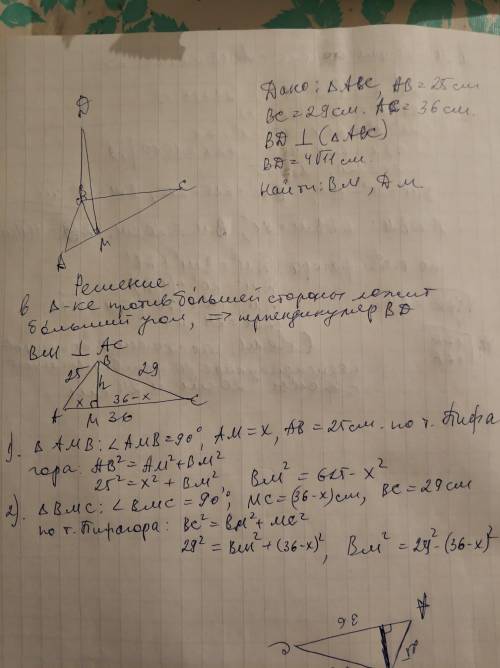 Дано: ΔABC, AB = 25 см
BC = 29 см. AC = 36 см
BD ⊥ (ΔABC)
BD = 4√11 см
Найти: BM, DM
D
B
C
A
M
Решение
В Δ-ке против большей стороны лежит
больший угол, => перпендикуляр BD
BM ⊥ AC
B
25
29
h
x
36-x
A
M
36
C
1). Δ AMB: ∠AMB = 90°, AM = x, AB = 25 см. по т. Пифа
гора: AB² = AM² + BM²
25² = x² + BM², BM² = 625 - x²
2). Δ BMC: ∠BMC = 90°, MC = (36-x) см, BC = 29 см
по т. Пифагора: BC² = BM² + MC²
29² = BM² + (36-x)², BM² = 29² - (36-x)²
36
A
C